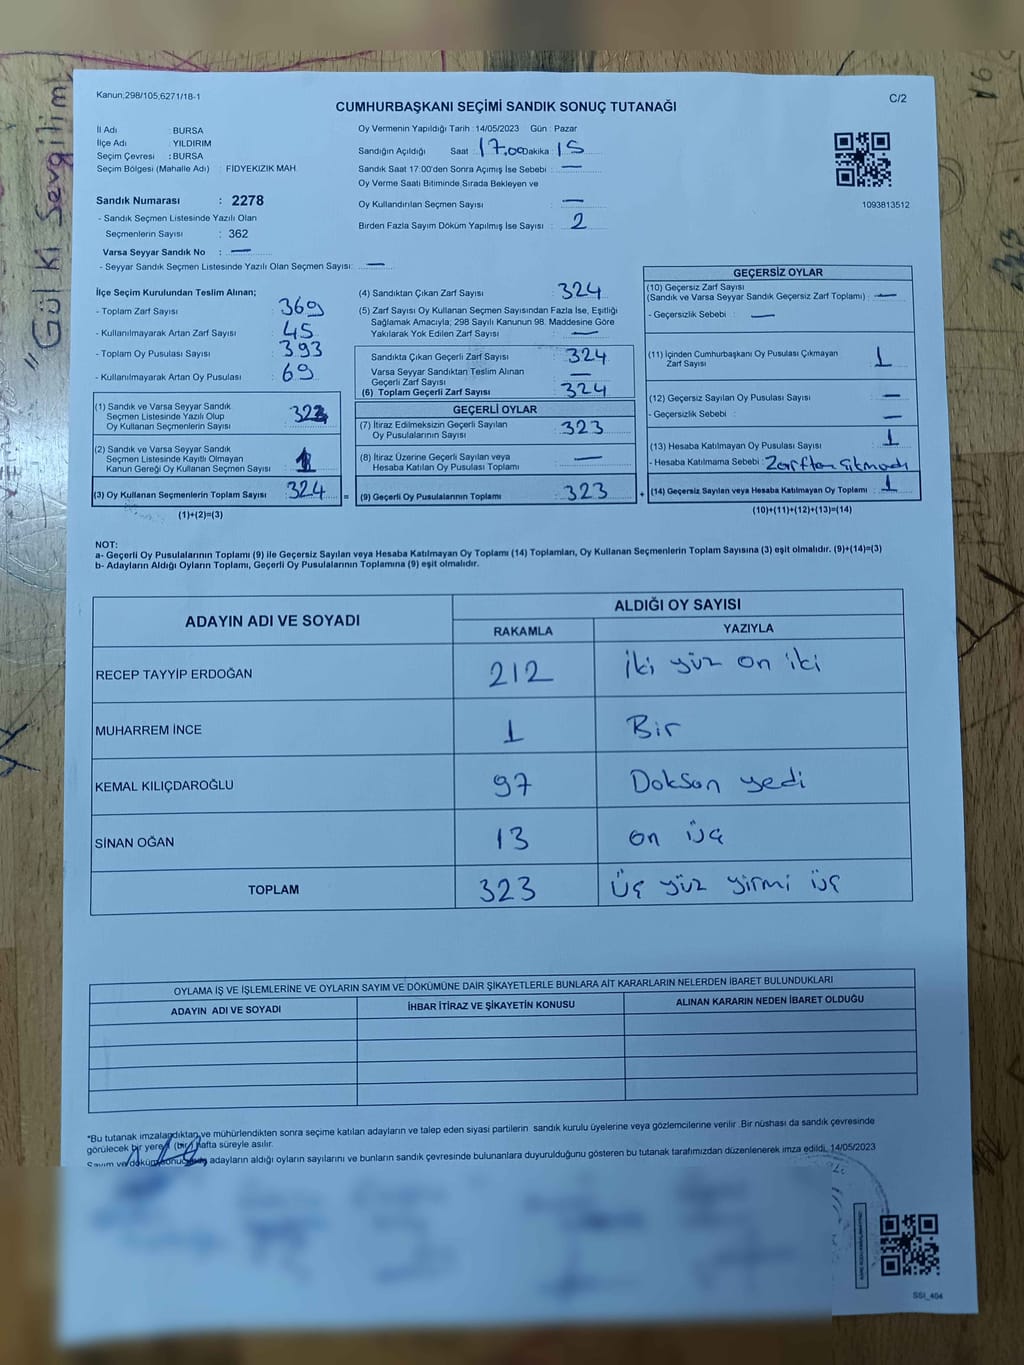 Kanun:298/105,6271/18-1
CUMHURBAŞKANI SEÇİMİ SANDIK SONUÇ TUTANAĞI
C/2
İl Adı : BURSA
İlçe Adı : YILDIRIM
Seçim Çevresi : BURSA
Seçim Bölgesi (Mahalle Adı) : FIDYEKIZIK MAH.
Sandık Numarası : 2278
- Sandık Seçmen Listesinde Yazılı Olan
Seçmenlerin Sayısı : 362
Varsa Seyyar Sandık No : —
- Seyyar Sandık Seçmen Listesinde Yazılı Olan Seçmen Sayısı: —
Oy Vermenin Yapıldığı Tarih : 14/05/2023 Gün : Pazar
Sandığın Açıldığı Saat : 17.00 Dakika : 15
Sandık Saat 17:00'den Sonra Açımış İse Sebebi : —
Oy Verme Saati Bitiminde Sırada Bekleyen ve
Oy Kullandırılan Seçmen Sayısı : —
Birden Fazla Sayım Döküm Yapılmış İse Sayısı : 2
1093813512
İlçe Seçim Kurulundan Teslim Alınan;
- Toplam Zarf Sayısı : 369
- Kullanılmayarak Artan Zarf Sayısı : 45
- Toplam Oy Pusulası Sayısı : 393
- Kullanılmayarak Artan Oy Pusulası : 69
(1) Sandık ve Varsa Seyyar Sandık
Seçmen Listesinde Yazılı Olup
Oy Kullanan Seçmenlerin Sayısı : 323
(2) Sandık ve Varsa Seyyar Sandık
Seçmen Listesinde Kayıtlı Olmayan
Kanun Gereği Oy Kullanan Seçmen Sayısı : 1
(3) Oy Kullanan Seçmenlerin Toplam Sayısı : 324 =
(1)+(2)=(3)
(4) Sandıktan Çıkan Zarf Sayısı : 324
(5) Zarf Sayısı Oy Kullanan Seçmen Sayısından Fazla İse, Eşitliği
Sağlamak Amacıyla; 298 Sayılı Kanunun 98. Maddesine Göre
Yakılarak Yok Edilen Zarf Sayısı : —
Sandıkta Çıkan Geçerli Zarf Sayısı : 324
Varsa Seyyar Sandıktan Teslim Alınan
Geçerli Zarf Sayısı : —
(6) Toplam Geçerli Zarf Sayısı : 324
GEÇERLİ OYLAR
(7) İtiraz Edilmeksizin Geçerli Sayılan
Oy Pusulalarının Sayısı : 323
(8) İtiraz Üzerine Geçerli Sayılan veya
Hesaba Katılan Oy Pusulası Toplamı : —
(9) Geçerli Oy Pusulalarının Toplamı : 323 +
GEÇERSİZ OYLAR
(10) Geçersiz Zarf Sayısı
(Sandık ve Varsa Seyyar Sandık Geçersiz Zarf Toplamı) : —
- Geçersizlik Sebebi : —
(11) İçinden Cumhurbaşkanı Oy Pusulası Çıkmayan
Zarf Sayısı : 1
(12) Geçersiz Sayılan Oy Pusulası Sayısı : —
- Geçersizlik Sebebi : —
(13) Hesaba Katılmayan Oy Pusulası Sayısı : 1
- Hesaba Katılmama Sebebi : Zarftan Çıkmadı
(14) Geçersiz Sayılan veya Hesaba Katılmayan Oy Toplamı : 1
(10)+(11)+(12)+(13)=(14)
NOT:
a- Geçerli Oy Pusulalarının Toplamı (9) ile Geçersiz Sayılan veya Hesaba Katılmayan Oy Toplamı (14) Toplamları, Oy Kullanan Seçmenlerin Toplam Sayısına (3) eşit olmalıdır. (9)+(14)=(3)
b- Adayların Aldığı Oyların Toplamı, Geçerli Oy Pusulalarının Toplamına (9) eşit olmalıdır.
ADAYIN ADI VE SOYADI ALDIĞI OY SAYISI
RAKAMLA YAZIYLA
RECEP TAYYİP ERDOĞAN 212 iki yüz on iki
MUHARREM İNCE 1 Bir
KEMAL KILIÇDAROĞLU 97 Doksan yedi
SİNAN OĞAN 13 on üç
TOPLAM 323 Üç yüz yirmi üç
OYLAMA İŞ VE İŞLEMLERİNE VE OYLARIN SAYIM VE DÖKÜMÜNE DAİR ŞİKAYETLERLE BUNLARA AİT KARARLARIN NELERDEN İBARET BULUNDUKLARI
ADAYIN ADI VE SOYADI İHBAR İTİRAZ VE ŞİKAYETİN KONUSU ALINAN KARARIN NEDEN İBARET OLDUĞU
*Bu tutanak imzalandıktan ve mühürlendikten sonra seçime katılan adayların ve talep eden siyasi partilerin sandık kurulu üyelerine veya gözlemcilerine verilir. Bir nüshası da sandık çevresinde
görülecek bir yere 1 (bir) hafta süreyle asılır.
Sayım ve döküm sonucunda, adayların aldığı oyların sayılarını ve bunların sandık çevresinde bulunanlara duyurulduğunu gösteren bu tutanak tarafımızdan düzenlenerek imza edildi. 14/05/2023
SSI_404
"Gül ki Sevgilim